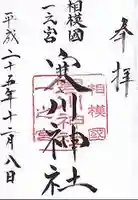 奉拝
相模國
一之宮
寒川神社
相模國
一之宮
平成二十五年十二月八日